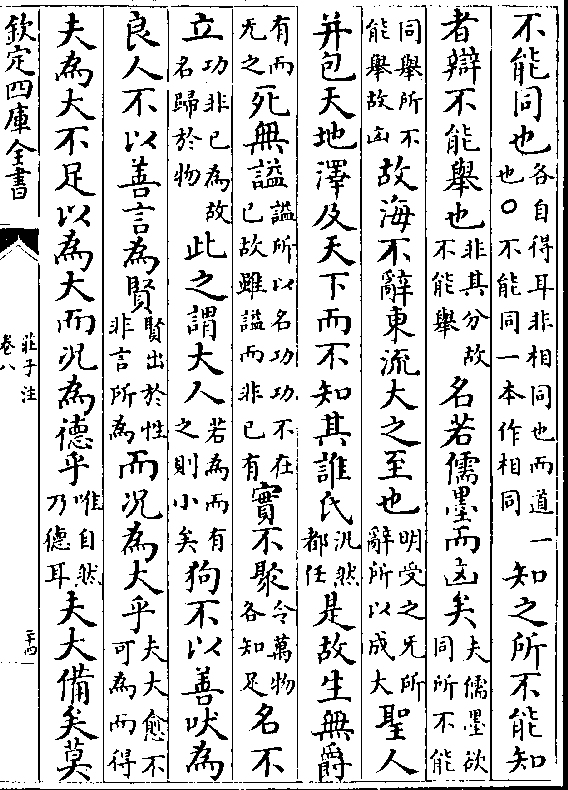 不能同也各自得耳非相同也而道一也○不能同一本作相同知之所不能知
者辯不能舉也非其分故不能舉名若儒墨而凶矣夫儒墨欲同所不能
同舉所不能舉故凶故海不辭東流大之至也明受之无所辭所以成大聖人
并包天地澤及天下而不知其誰氏汎然都任是故生無爵
有而无之死無謚謚所以名功功不在已故雖謚而非已有實不聚令萬物各知足名不
立功非已為故名歸於物此之謂大人若為而有之則小矣狗不以善吠為
良人不以善言為賢賢出於性非言所為而况為大乎夫大愈不可為而得
夫為大不足以為大而况為德乎唯自然乃德耳夫大備矣莫
欽定四庫全書
莊子注
卷八
二十四